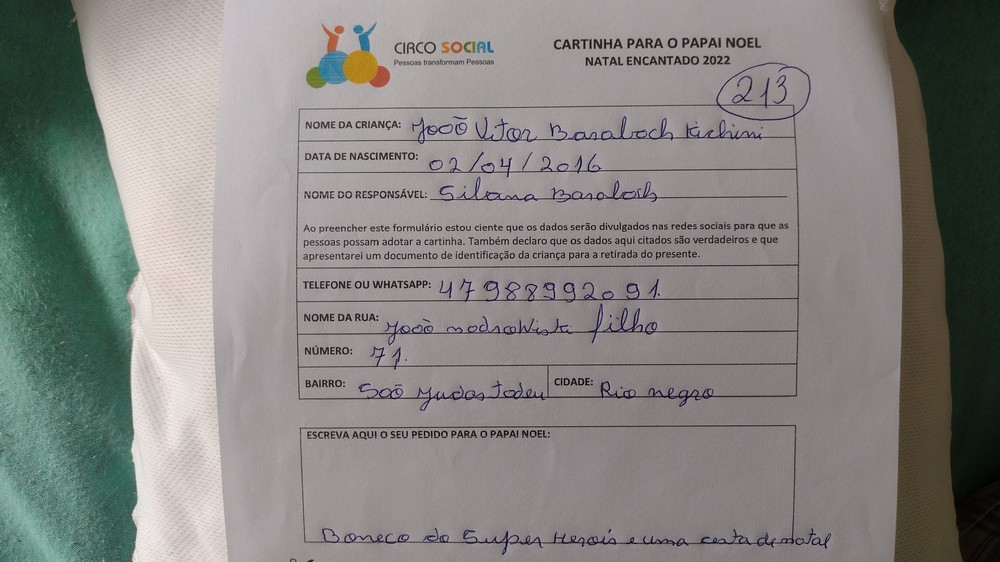 CIRCO SOCIAL
Pessoas transformam Pessoas
CARTINHA PARA O PAPAI NOEL
NATAL ENCANTADO 2022
213
NOME DA CRIANÇA: João Vitor Basaloch Kichini
DATA DE NASCIMENTO: 02/04/2016
NOME DO RESPONSÁVEL: Silvana Basaloch
Ao preencher este formulário estou ciente que os dados serão divulgados nas redes sociais para que as
pessoas possam adotar a cartinha. Também declaro que os dados aqui citados são verdadeiros e que
apresentarei um documento de identificação da criança para a retirada do presente.
TELEFONE OU WHATSAPP: 47988992091.
NOME DA RUA: João filho
NÚMERO: 71.
BAIRRO: Saõ Judas Tadeu CIDADE: Rio negro
ESCREVA AQUI O SEU PEDIDO PARA O PAPAI NOEL:
Boneco do Super Herois e uma cesta de natal